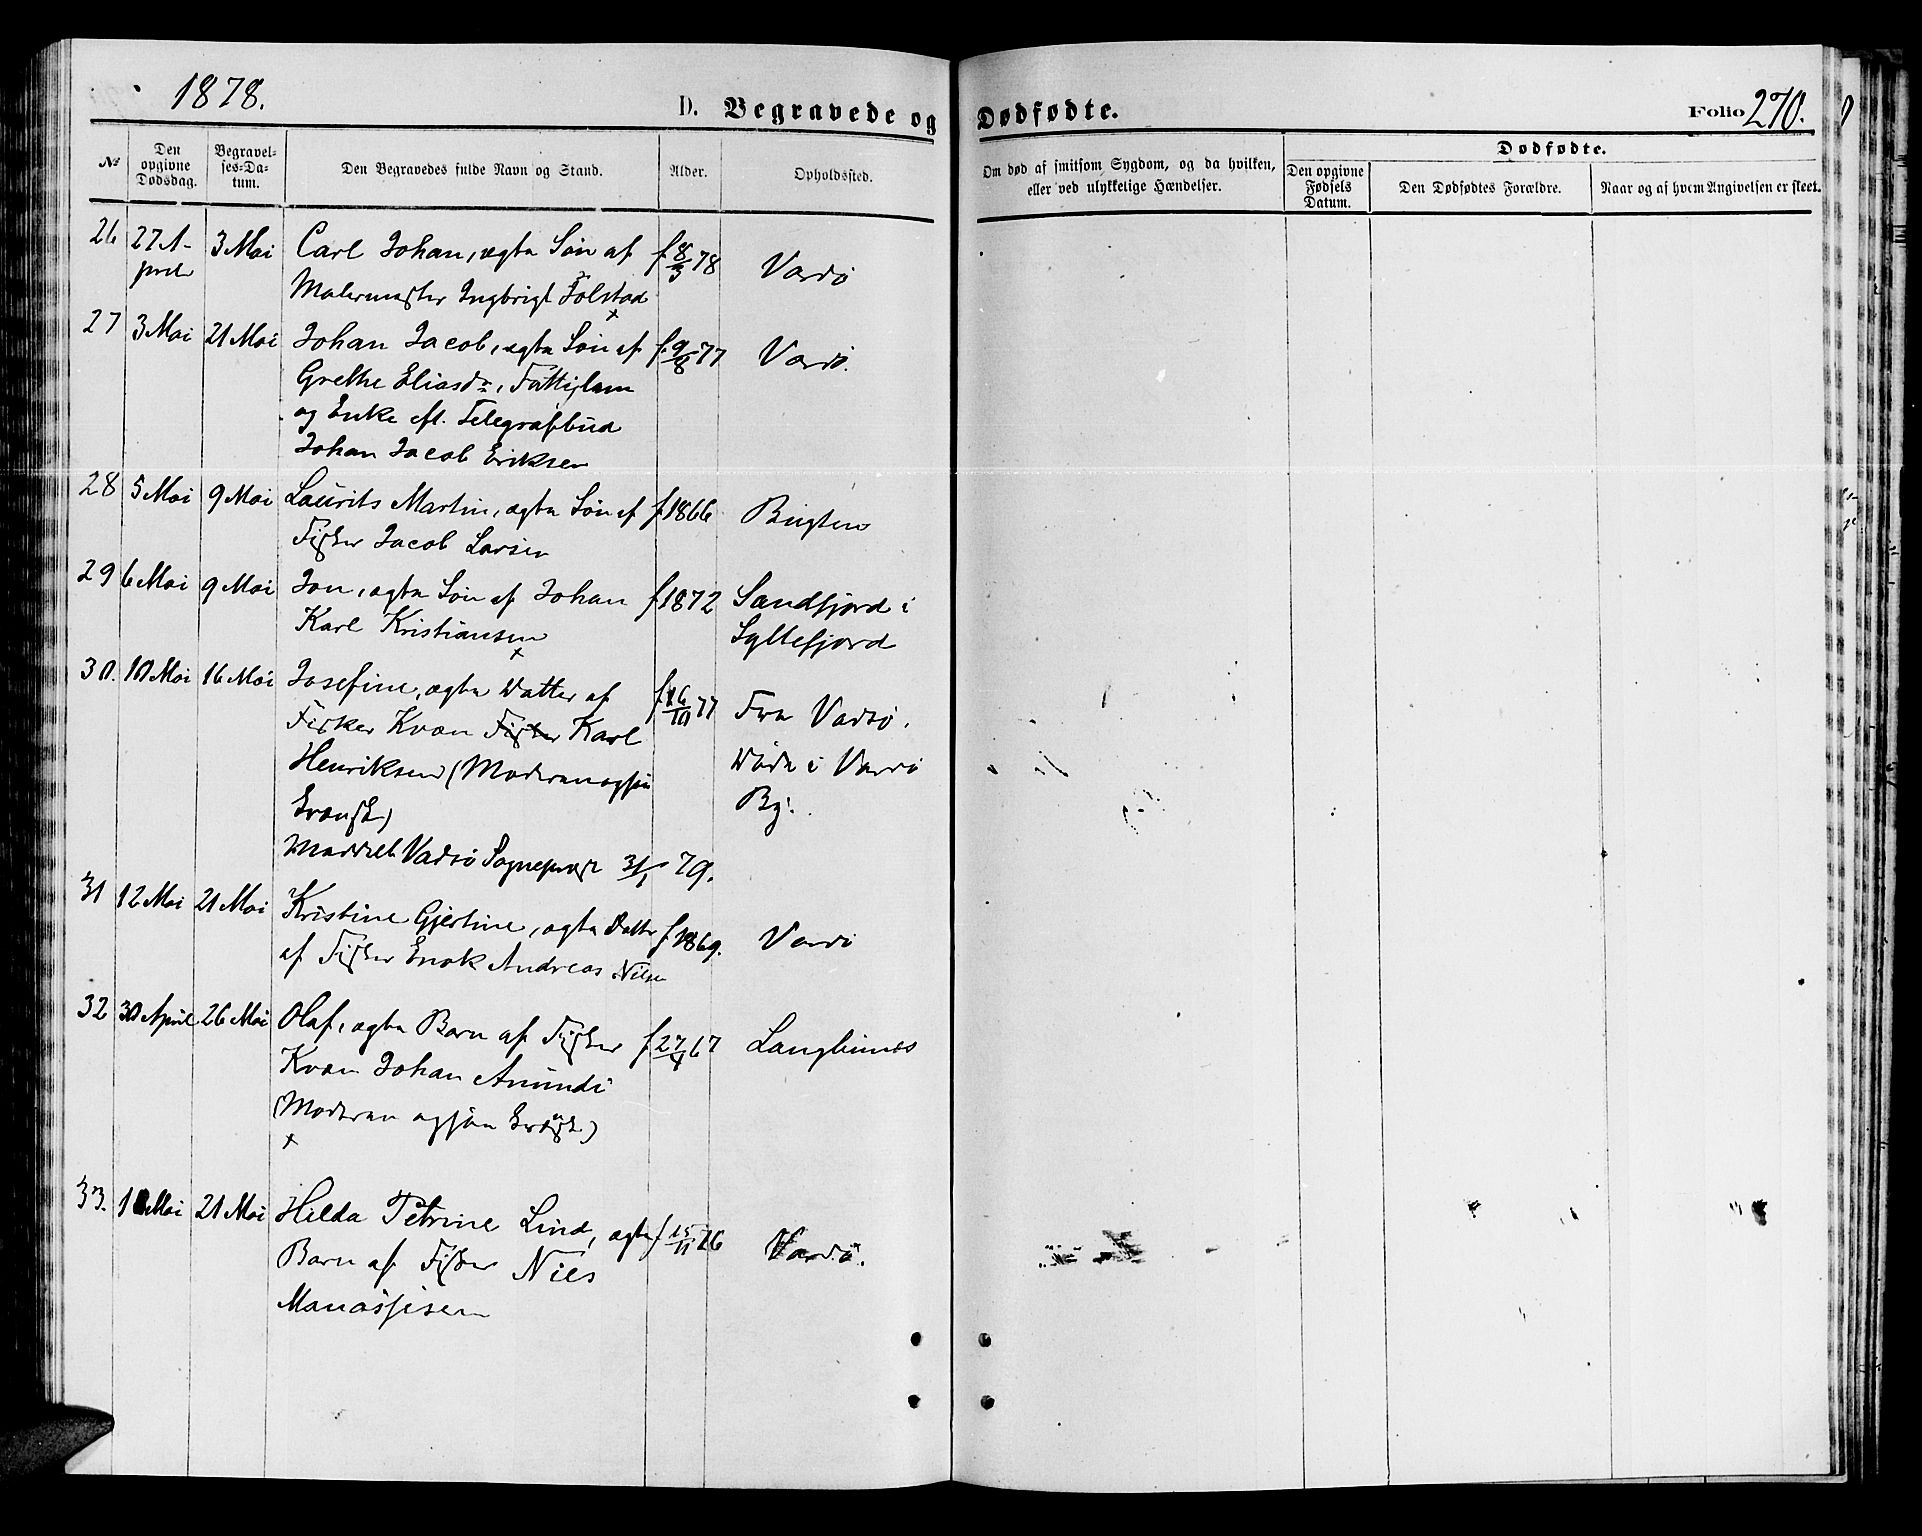 1878.
D. Begravede og Dødfødte.
Folio 270.
№
Den opgivne Dødsdag.
Begravel-
ses-Da-
tum.
Den Begravedes fulde Navn og Stand.
Alder.
Opholdssted.
Om død af smitsom Sygdom, og da hvilken,
eller ved ulykkelige Hændelser.
Dødfødte.
Den opgivne
Fødsels
Datum.
Den Dødfødtes Forældre.
Naar og af hvem Angivelsen er skeet.
26 27 A- 3 Mai Carl Johan, ægte Søn af f. 8/3 78 Vardø
pril Malermester Ingbrigt Tolstad
27 3 Mai 21 Mai Johan Jacob, ægte Søn af f. 9/8 77 Vardø.
Grethe Eliasdr, Fattiglem
og Enke eft. Telegrafbud
Johan Jacob Eriksen
28 5 Mai 9 Mai Laurits Martin, ægte Søn af f 1866 Bugten
Fisker Jacob Larsen
29 6 Mai 9 Mai Jon, ægte Søn af Johan f 1872 Sandfjord i
Karl Kristiansen Syltefjord
30. 10 Mai 16 Mai Josefine, ægte Datter af f 16/10 77 Fra Vadsø.
Fisker Kvæn Fisker Karl Døde i Vardø
Henriksen (Moderen ogsaa By.
kvænsk)
Meddelt Vadsø Sognepræst 31/1 79.
31 12 Mai 21 Mai Kristine Gjertine, ægte Datter f 1869. Vardø
af Fisker Enok Andreas Nilsen
32 30 April 26 Mai Olaf, ægte Barn af Fisker f 27/4 67 Langbunes
Kvæn Johan Anundi
(Moderen ogsaa kvænsk.)
33. Mai 21 Mai Hilda Petrine Lind, ægte f 15/11 76 Vardø.
Barn af Fisker Nils
Manassisen